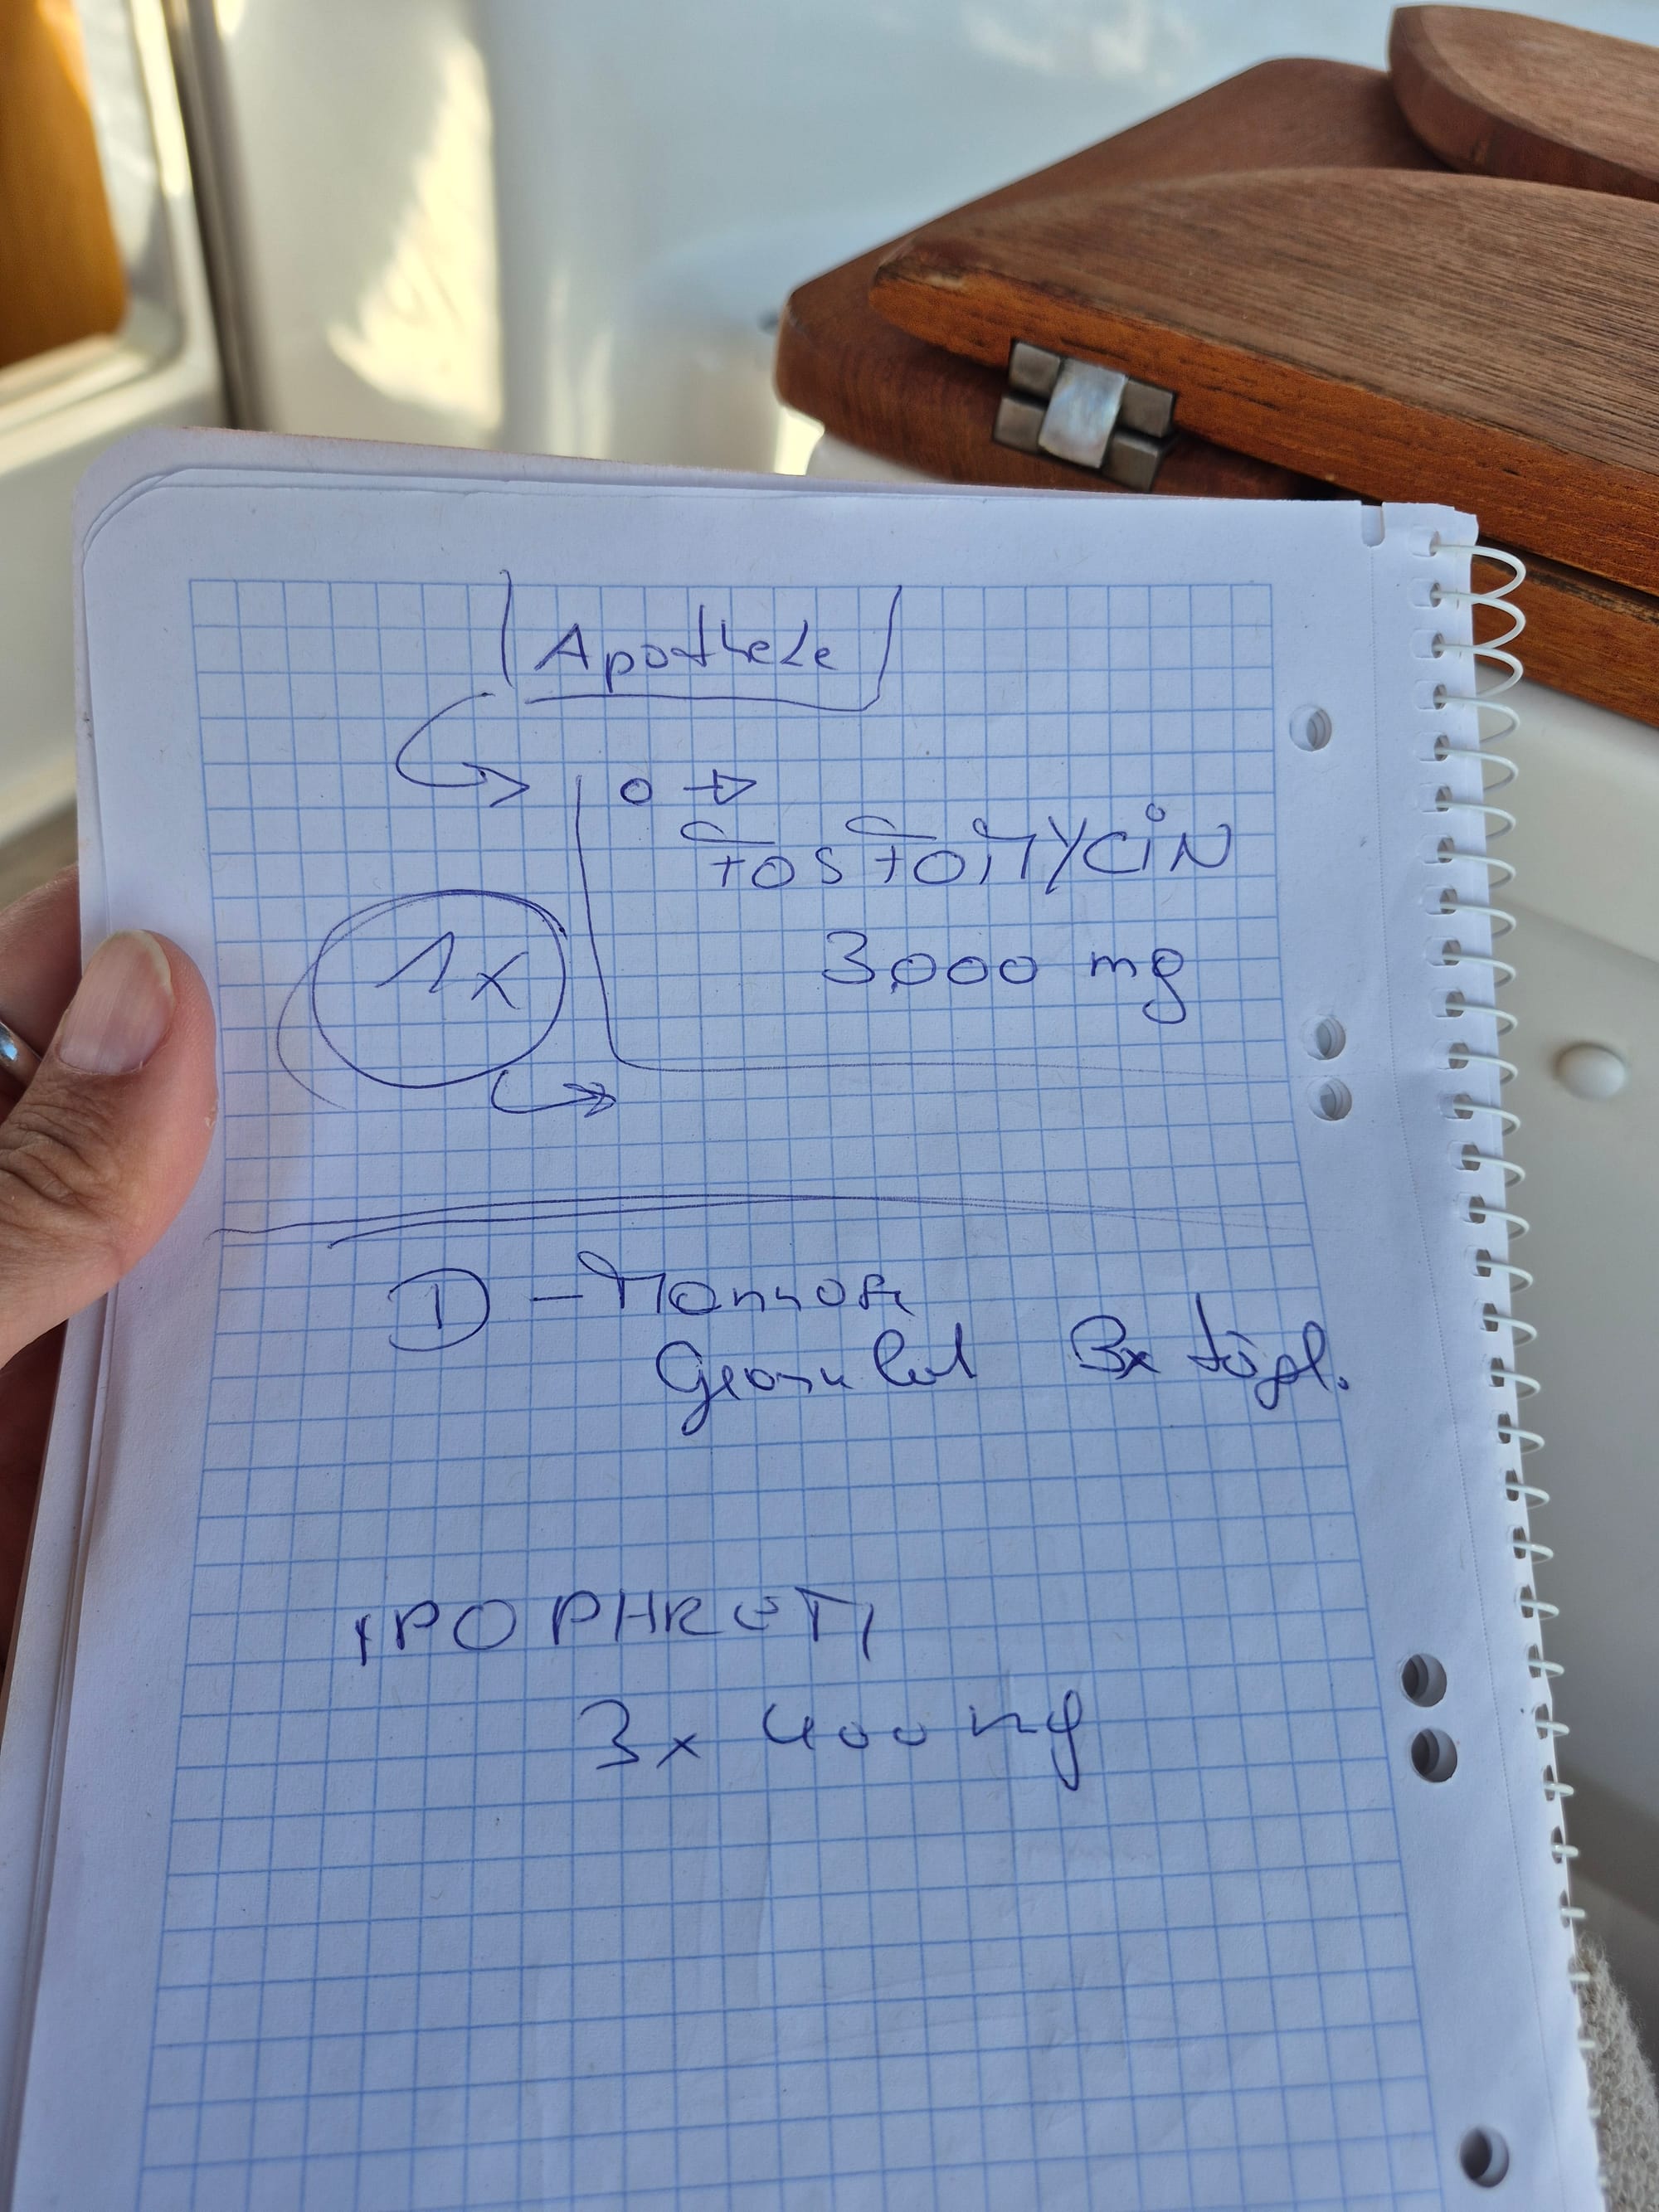 Apotheke
FOSFOMYCIN
1x
3.000 mg
D - Mannose
Granulat 3x tägl.
3x 400 mg